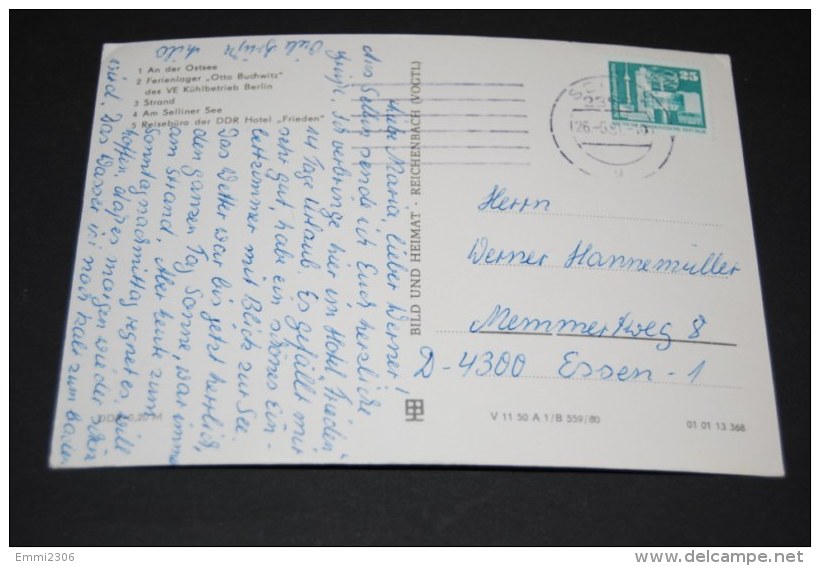 1 An der Ostsee
2 Ferienlager „Otto Buchwitz"
des VE Kühlbetrieb Berlin
3 Strand
4 Am Selliner See
5 Reisebüro der DDR Hotel „Frieden"
Liebe Maria lieber Werner!
Aus Sellin sende ich Euch herzliche
Grüße. Ich verbringe hier im Hotel „Frieden"
14 Tage Urlaub. Es gefällt mir
sehr gut, habe ein schönes Ein-
bettzimmer mit Blick zur See.
Das Wetter war bis jetzt herrlich,
den ganzen Tag Sonne, war immer
am Strand. Aber heute zum
Sonntagnachmittag regnet es. Will
hoffen, daß es morgen wieder schön
wird. Das Wasser ist noch kalt zum Baden
Viele Grüße
BILD UND HEIMAT · REICHENBACH (VOGTL)
25
Herrn
Werner Hannemüller
Memmertweg 8
D-4300 Essen-1
DDR 0,20 M
V 11 50 A 1/B 559/80
01 01 13 368
Emmi2306
http://www.delcampe.net